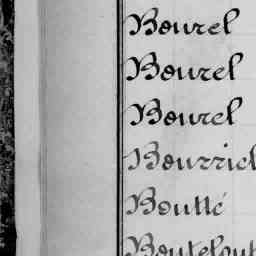 Bourel
Bourel
Bourel
Bourricl
Boutté
Boutelout